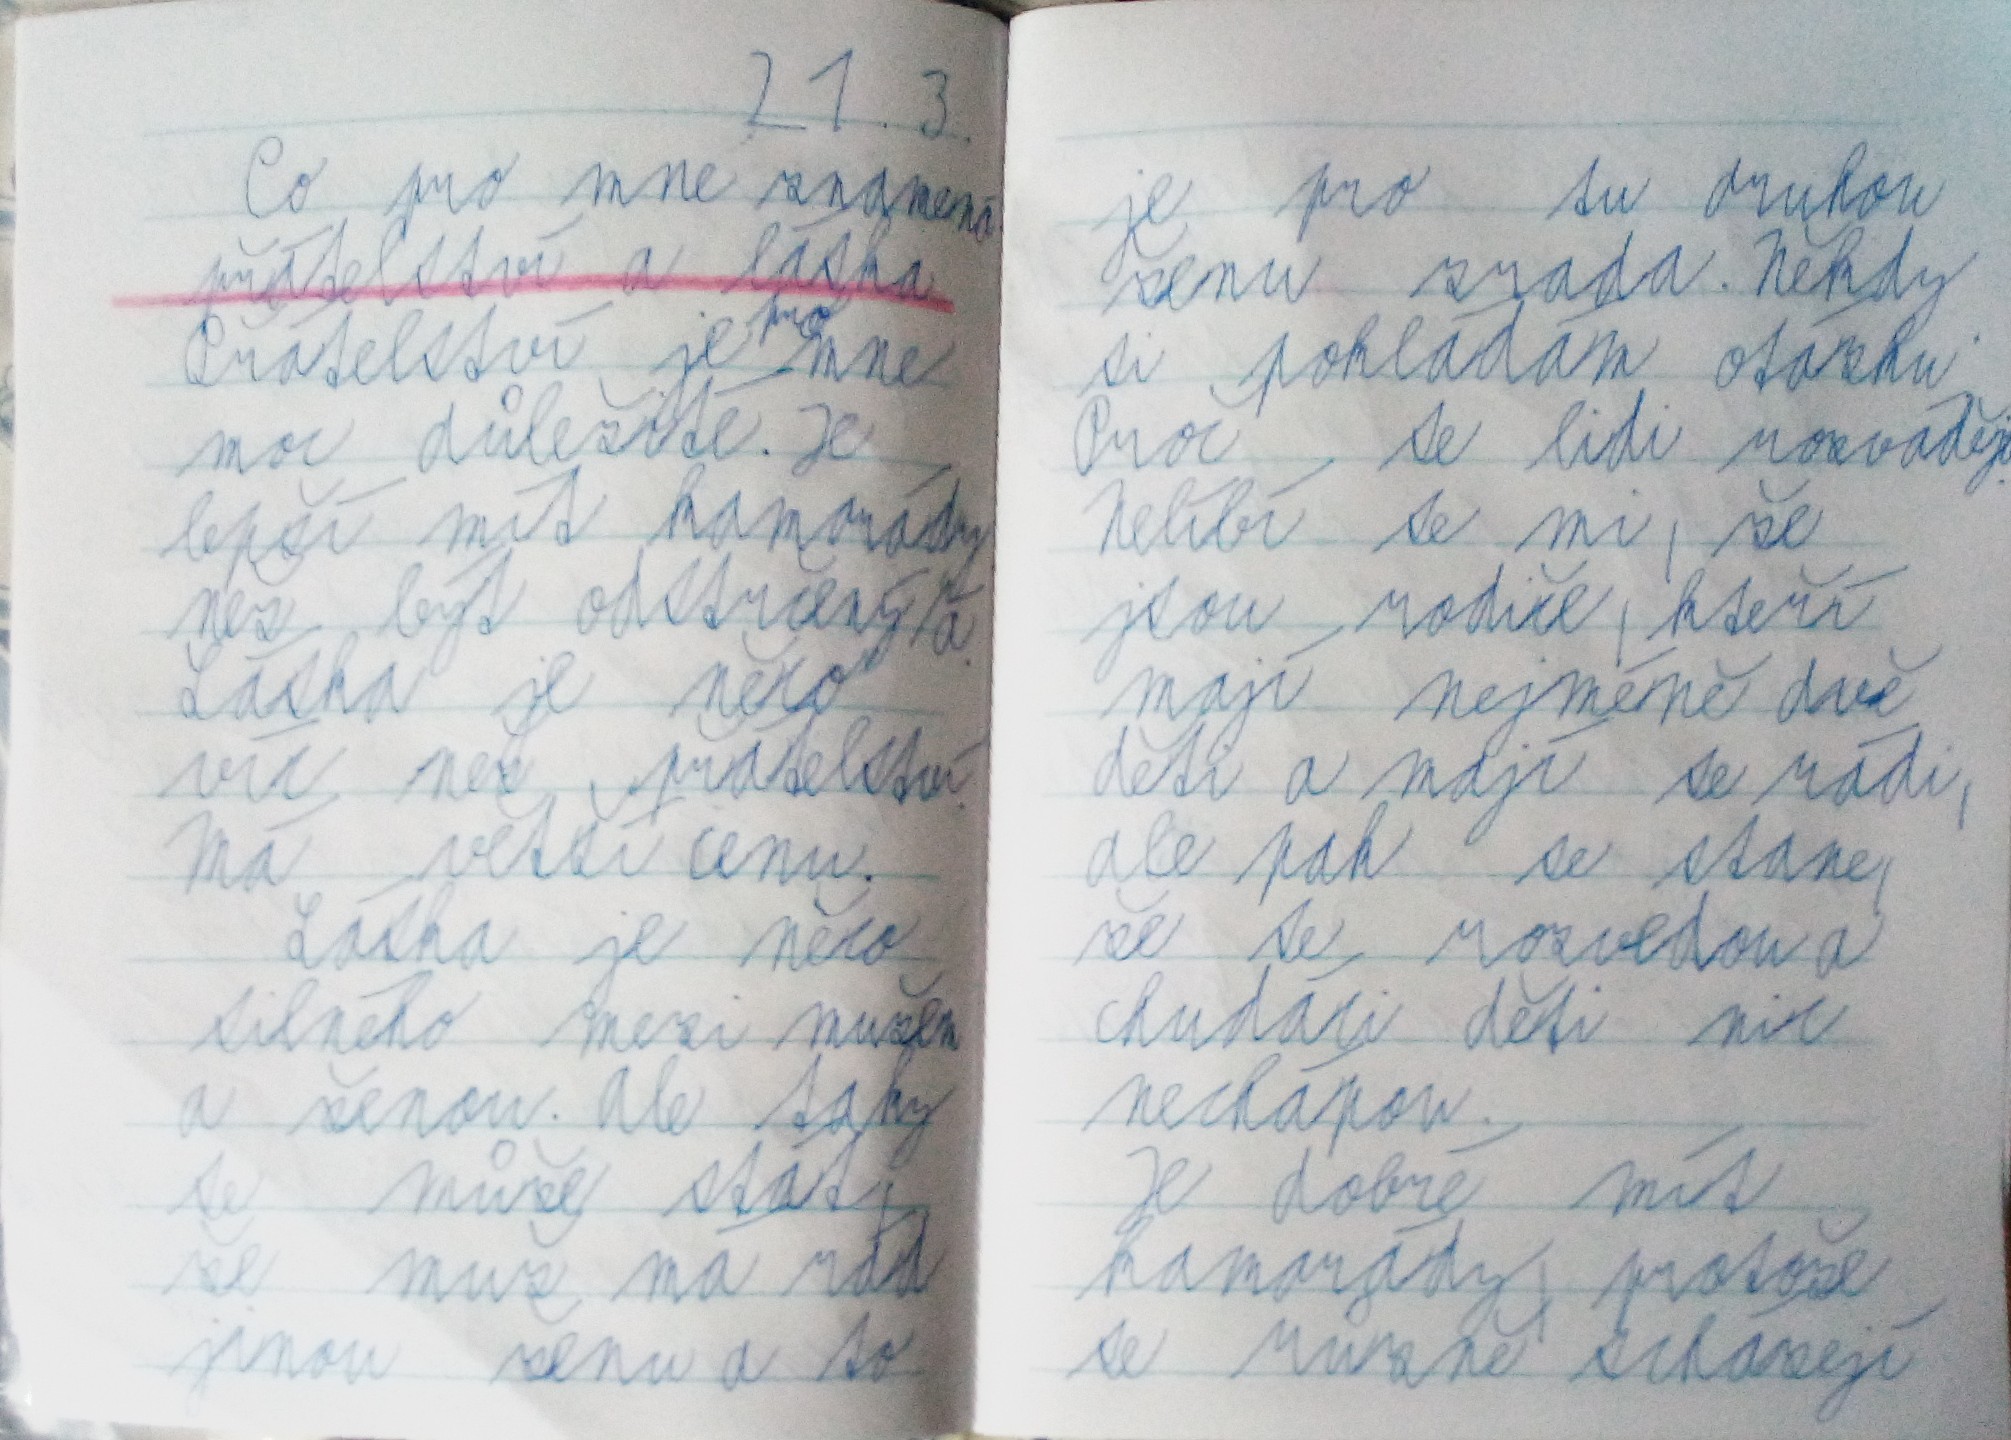 21. 3.
Co pro mne znamená
přátelství a láska
Přátelství je pro mne
moc důležité. Je
lepší mít kamarády
než být odstrčený/á.
Láska je něco
víc než přátelství.
Má větší cenu.
Láska je něco
silného mezi mužem
a ženou. Ale taky
se může stát,
že muž má rád
jinou ženu a to
je pro tu druhou
ženu zrada. Někdy
si pokládám otázku:
Proč se lidi rozvádějí.
Nelíbí se mi, že
jsou rodiče, kteří
mají nejméně dvě
děti a mají se rádi,
ale pak se stane,
že se rozvedou a
chudáci děti nic
nechápou.
Je dobré mít
kamarády, protože
se různě scházejí